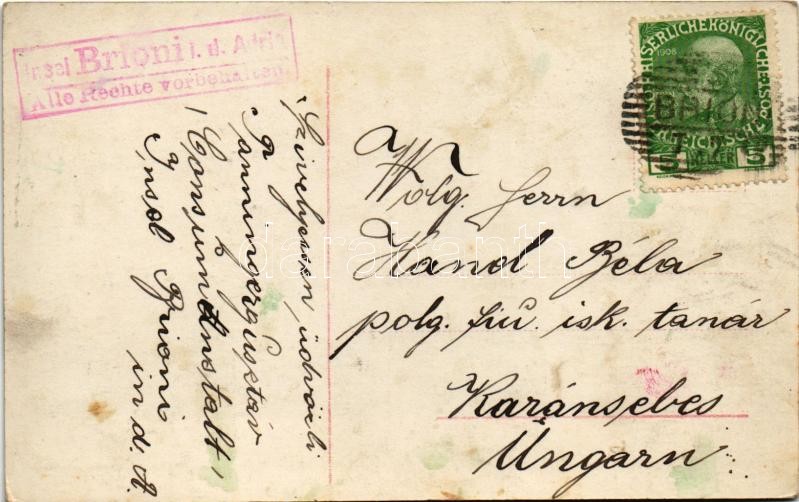 Insel Brioni i. d. Adria
Alle Rechte vorbehalten.
KAISERLICHE KÖNIGLICHE ÖSTERREICHISCHE
1908
5 HELLER 5
BRIONI
Szivélyesen üdvözli
Consum Anstalt,
Insel Brioni
in d. A.
Wolg. Herrn
Hand Béla
polg. fiú. isk. tanár
Karánsebes
Ungarn
darabanth